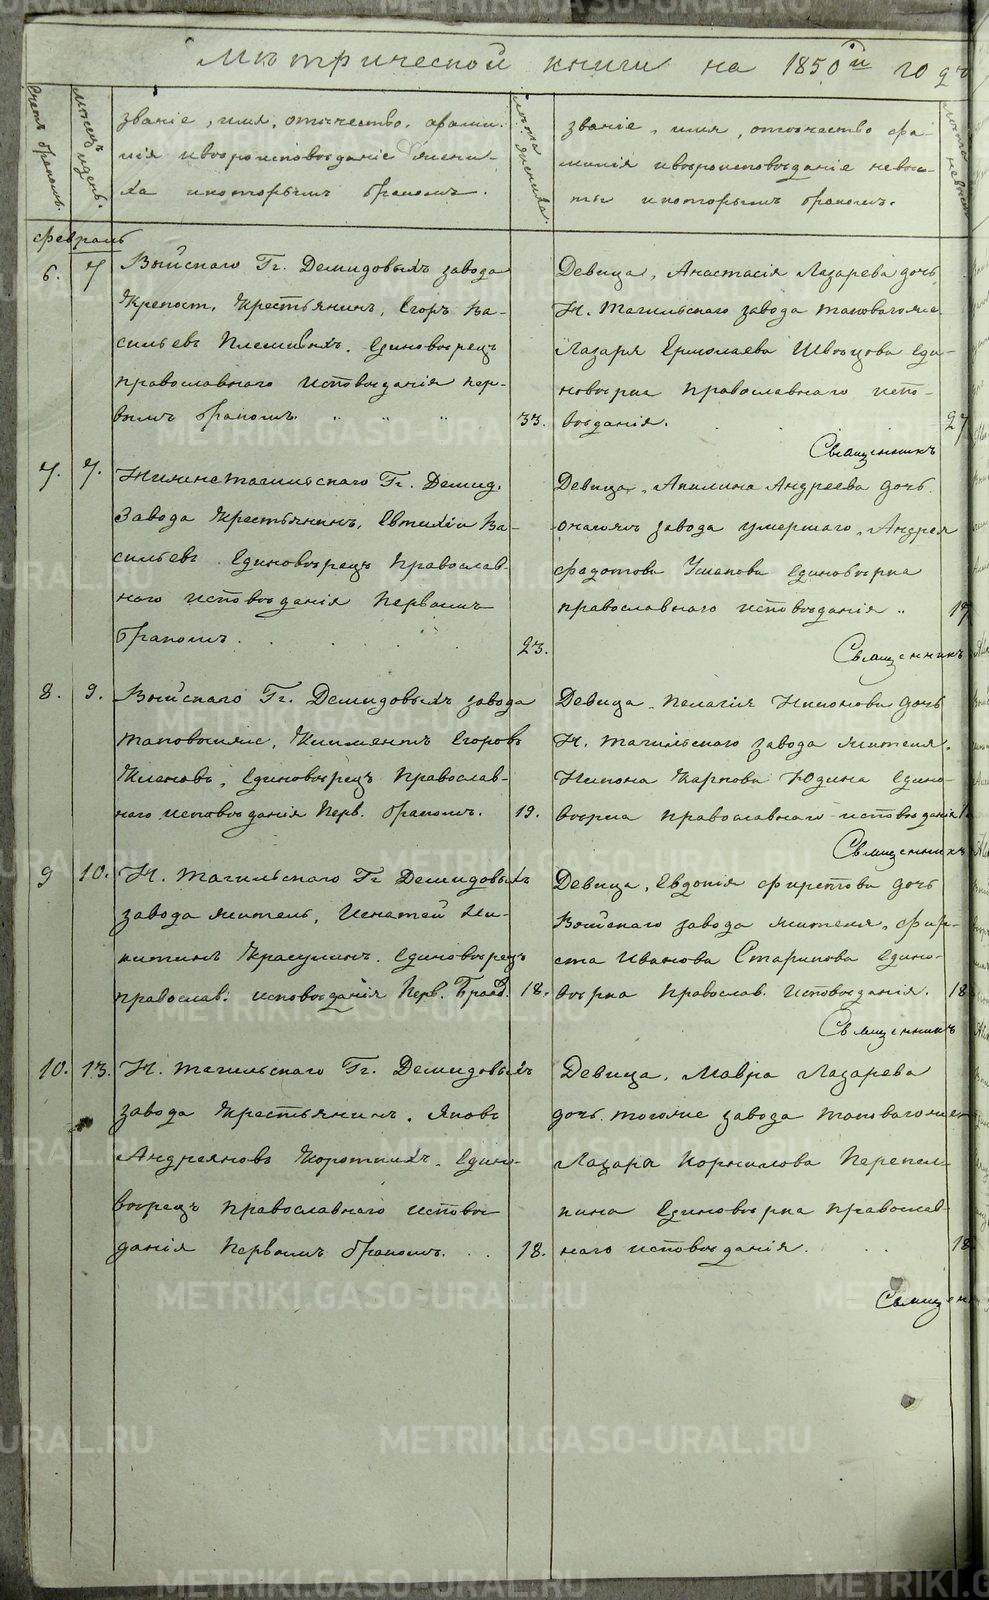 Метрической книги на 1850й годъ
Счетъ браковъ.
Месяцъ и день.
званіе, имя, отчество, фами-
лія и вѣроисповѣданіе жени-
ха и которымъ бракомъ.
Лѣта жениха.
званіе, имя, отчество фа-
милія и вѣроисповѣданіе невѣс-
ты и которымъ бракомъ.
Лѣта невѣсты
Февраль
6. 7 Выйскаго Гг. Демидовыхъ завода
Крепост. Крестьянинъ, Егоръ Ва-
сильевъ Плешивыхъ. Единовѣрецъ
православнаго исповѣданія пер-
вымъ бракомъ. 33.
Девица, Анастасія Лазарева дочь
Н. Тагильскаго завода таковагоже
Лазаря Ермолаева Швецова еди-
новѣрка православнаго испо-
вѣданія. 27
Священникъ
7. 7. Нижнетагильскаго Гг. Демид.
Завода Крестьянинъ, Евтихіи Ва-
сильевъ Единовѣрецъ Православ-
наго исповѣданія Первымъ
Бракомъ. 23.
Девица, Акилина Андреева дочь
онагожъ завода умершаго, Андрея
Федотова Ушакова Единовѣрка
православнаго исповѣданія 17
Священникъ
8. 9. Выйскаго Гг. Демидовыхъ завода
таковыйже, Климентъ Егоровъ
Кленовъ, Единовѣрецъ Православ-
наго исповѣданія Перв. бракомъ. 19.
Девица Пелагія Никонова дочь
Н. Тагильскаго завода жителя,
Никона Карпова Юдина едино-
вѣрка православнаго исповѣданія
Священникъ
9 10. Н. Тагильскаго Гг Демидовыхъ
завода житель, Игнатей Ни-
китинъ Красулинъ. Единовѣрецъ
православ: исповѣданія Перв. Брако. 18.
Девица, Евдокія Фирстова дочь
Выйскаго завода жителя, Фир-
ста Иванова Старикова едино-
вѣрка Православ. Исповѣданія. 18
Священникъ
10. 13. Н. Тагильскаго Гг. Демидовыхъ
завода Крестьянинъ, Яковъ
Андреяновъ Короткихъ. Едино-
вѣрецъ православнаго исповѣ
данія Первымъ бракомъ. 18.
Девица, Мавра Лазарева
дочь, тогоже завода таковагоже
Лазаря Корнилова Перепел-
кина Единовѣрка Православ-
наго исповѣданія. 18
Священ
METRIKI.GASO-URAL.RU